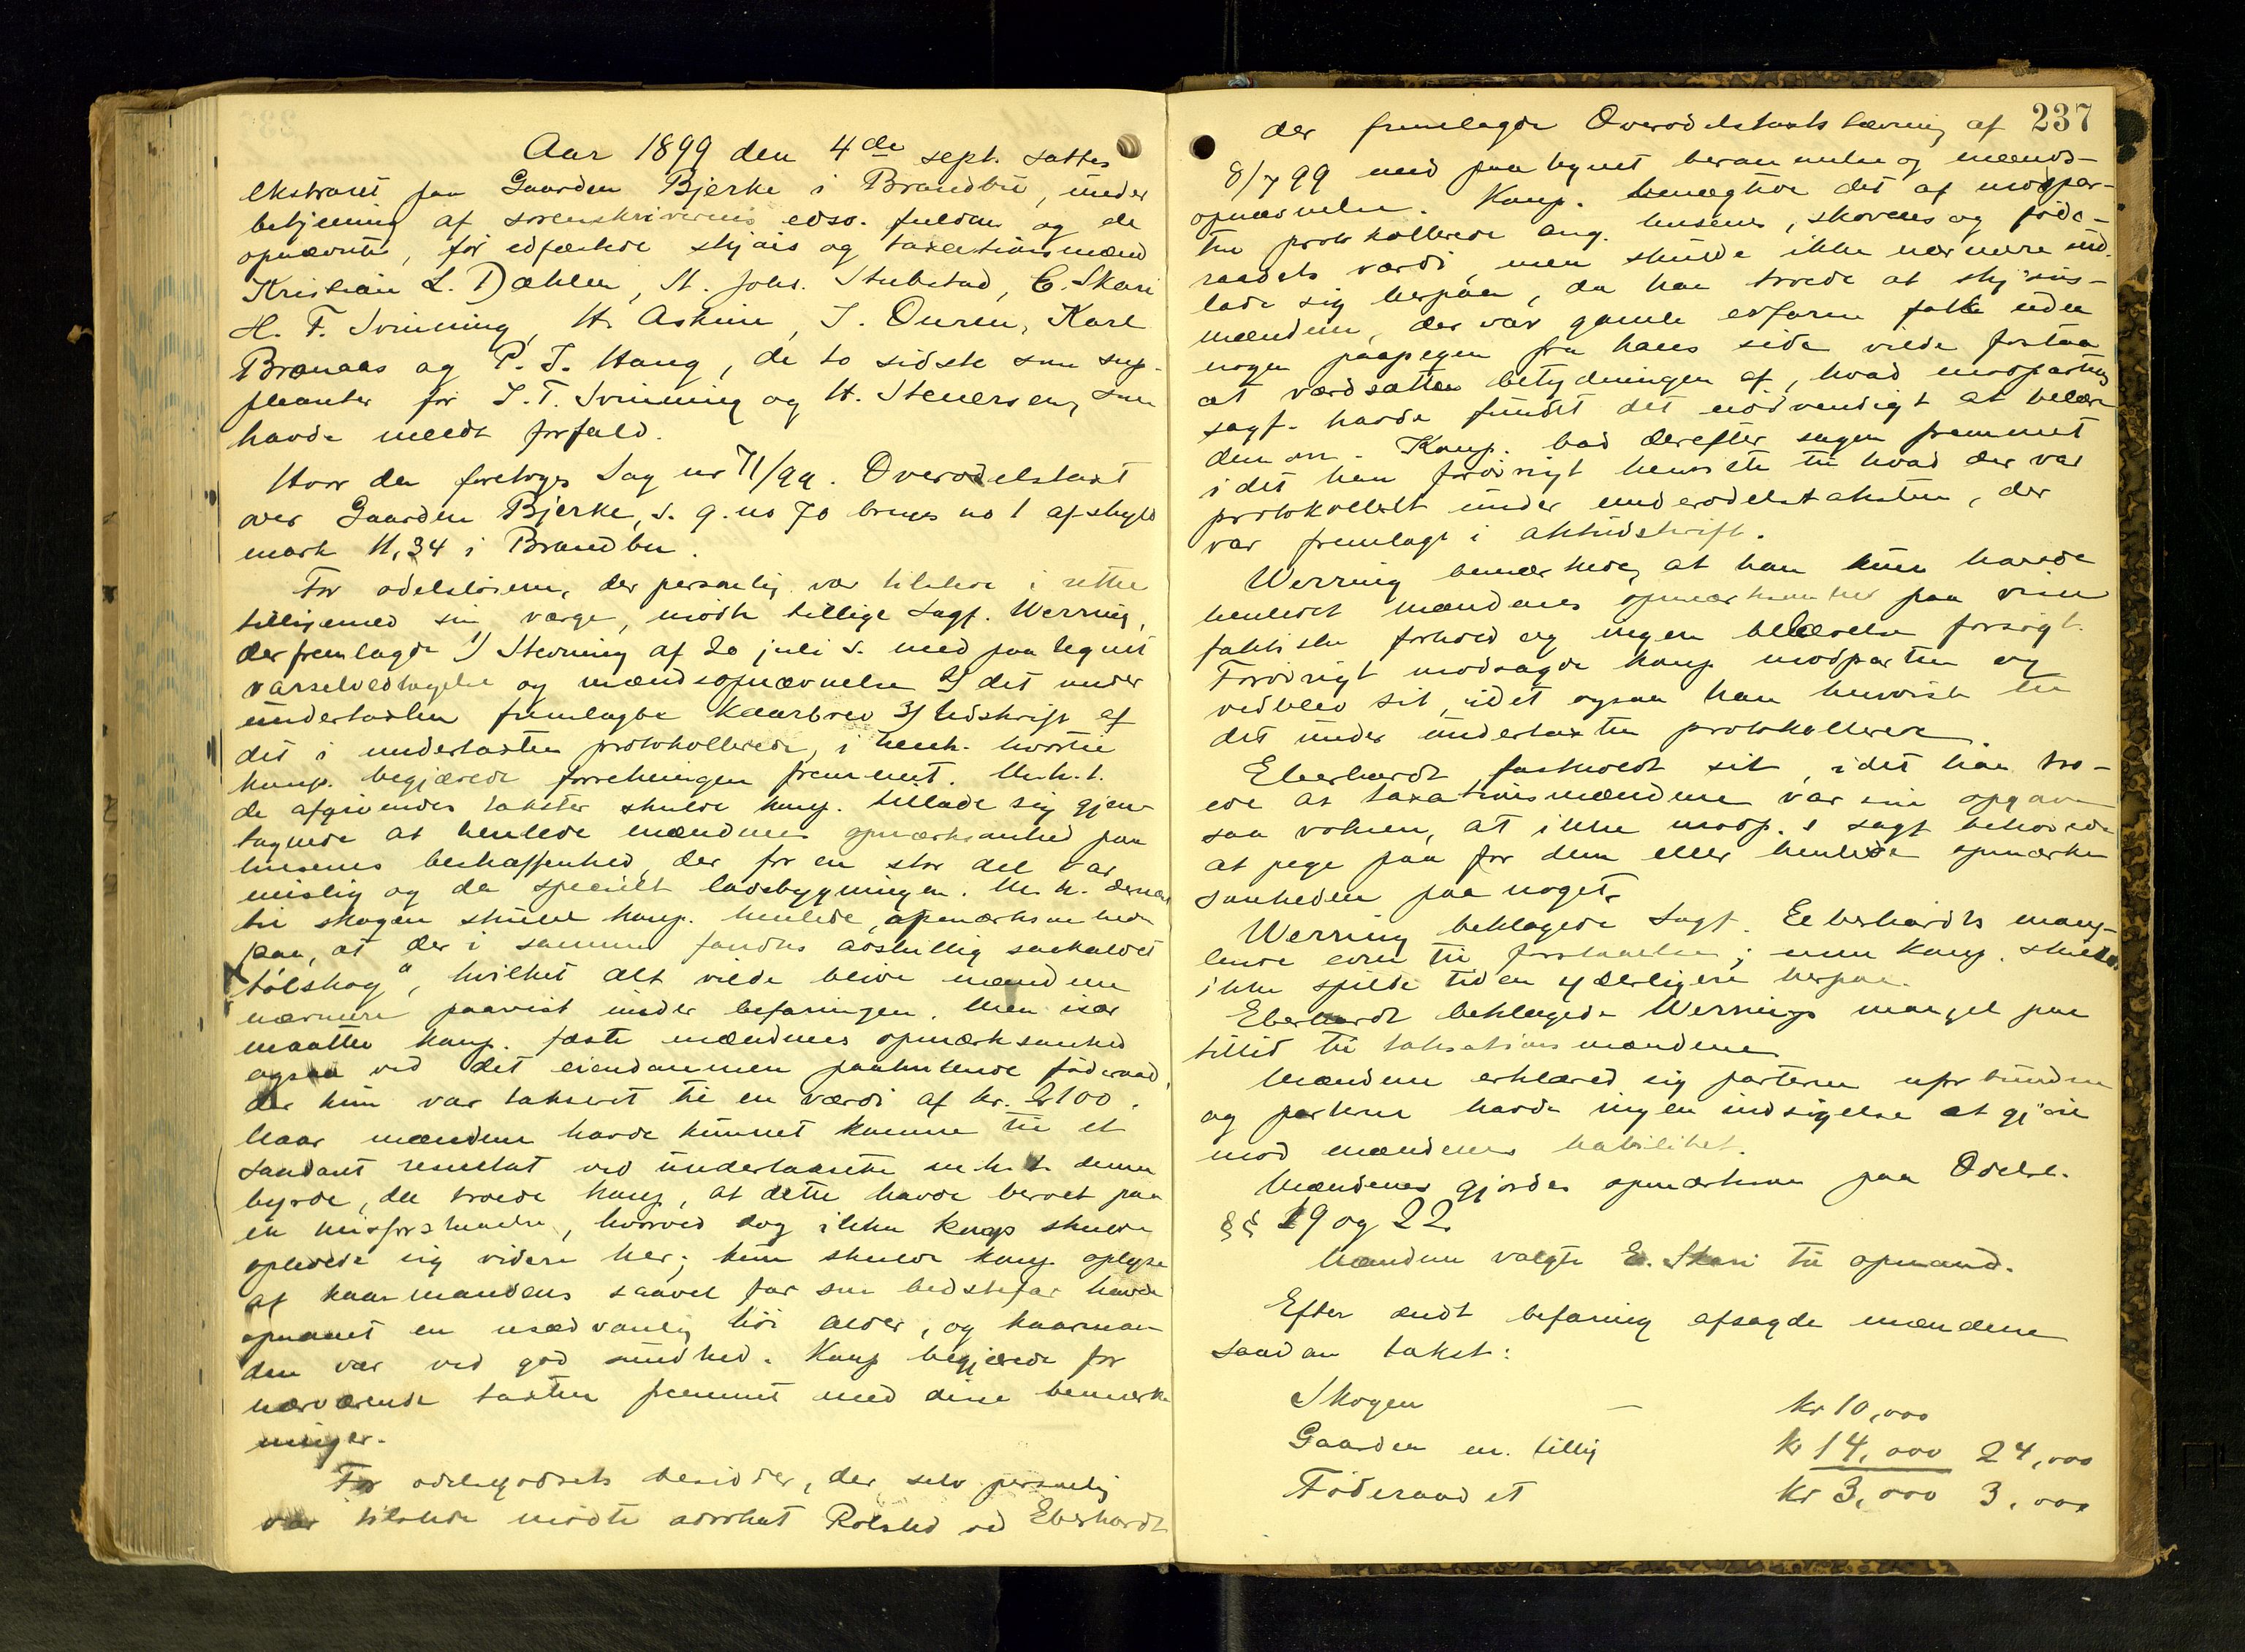 Aar 1899 den 4de sept. sattes
ekstraret paa Gaarden Bjerke i Brandbu, under
betjening af sorenskriverens edsv. fuldm. og de
opnævnte, før edfæstede skjøns og taxationsmænd
Kristian L. Dæhlen, H. Johs. Stubstad, E. Skari
H. F. Svinning, H. Askim, J. Ouren, Karl
Brænaas og P. J. Haug, de to sidste som sup-
pleanter for J. T. Svinning og H. Steuersen, som
havde meldt forfald.
Hvor da foretoges Sag nr 71/99. Overodelstaxt
over Gaarden Bjerke, s. g. no 70 bruges no 1 af skyld
mark 11,34 i Brandbu.
For odelsløseren, der personlig var tilstede i rette
tilligemed sin værge, mødte tillige Sagf. Werring,
der fremlagde 1) Stevning af 20 juli d. med paategnet
varselvedtagelse og mændsopnævnelse 2) det under
undertaxten fremlagte kaarbrev 3) Udskrift af
det i undertaxten protokollerede, i henh. hvortil
komp. begjærede forretningen fremmet. M. h. t.
de afgivendes takster skulde komp. tillade sig gjen-
tagende at henlede mændenes opmærksomhed paa
husenes beskaffenhed, der for en stor del var
mislig og da specielt ladebygningen. M. h. dernæst
til skogen skulde komp. henlede opmærksomheden
paa, at der i samme fandtes adskillig saakaldet
"tølskog", hvilket alt vilde blive mændene
nærmere paavist under befaringen. Men især
maatte komp. fæste mændenes opmærksomhed
ogsaa ved det eiendommen paahvilende føderaad,
der kun var takseret til en værdi af kr. 2100.
Naar mændene havde kunnet komme til et
saadant resultat ved undertaxten m. h. t. denne
byrde, da troede komp., at dette havde beroet paa
en misforstaaelse, hvorved dog ikke komp skulde
opholde sig videre her; kun skulde komp oplyse
at kaarmandens saavel far som bedstefar havde
opnaaet en usædvanlig høi alder, og kaarman-
den var ved god sundhed. Komp begjærede for
nærværende taxten fremmet med disse bemærk-
ninger.
For odelsgodsets besidder, der selv personlig
var tilstede mødte advokat Rolsted ved Eberhardt
237
der fremlagde Overodelstaxts tævning af
8/7 99 med paategnet berammelse og mænds-
opnævnelse. Komp. benægtede det af modpar-
ten protokollerede ang. husenes, skovens og føde-
raadets værdi, men skulde ikke nærmere ind-
lade sig herpaa, da han troede at skjøns-
mændene, der var gamle erfarne folk uden
nogen paapegen fra hans side vilde forstaa
at værdsætte betydningen af, hvad modpartens
sagf. havde fundet det nødvendigt at belære
dem om. Komp. bad derefter sagen fremmet
idet han forøvrigt henviste til hvad der var
protokollert under underodelstaksten, der
var fremlagt i aktudskrift.
Werring bemærkede, at han kun havde
henledet mændenes opmærksomhed paa visse
faktiske forhold og ingen belærelse forsøgt.
Forøvrigt modsagde komp modparten og
vedblev sit, idet ogsaa han henviste til
det under undertaxten protokollerede.
Eberhardt fastholdt sit, idet han tro-
ede at taxationsmændene var sin opgave
saa voksen, at ikke modp.s sagf behøvede
at pege paa for dem eller henlede opmærk-
somheden paa noget.
Werring beklagede Sagf. Eberhardts mang-
lende evne til forstaaelse; men komp. skulde
ikke spilde tiden yderligere herpaa.
Eberhardt beklagede Werrings mangel paa
tillid til taksationsmændene.
Mændene erklæred sig parterne uforbundne
og parterne havde ingen indsigelse at gjøre
mod mændenes habilitet.
Mændenes gjordes opmærksom paa Odelsl.
§§ 19 og 22.
Mændene valgte E. Skari til opmand.
Efter endt befaring afsagde mændene
saadan takst:
Skogen — kr 10,000
Gaarden m. tillig kr 14,000 24,000
Føderaadet kr 3,000 3,000